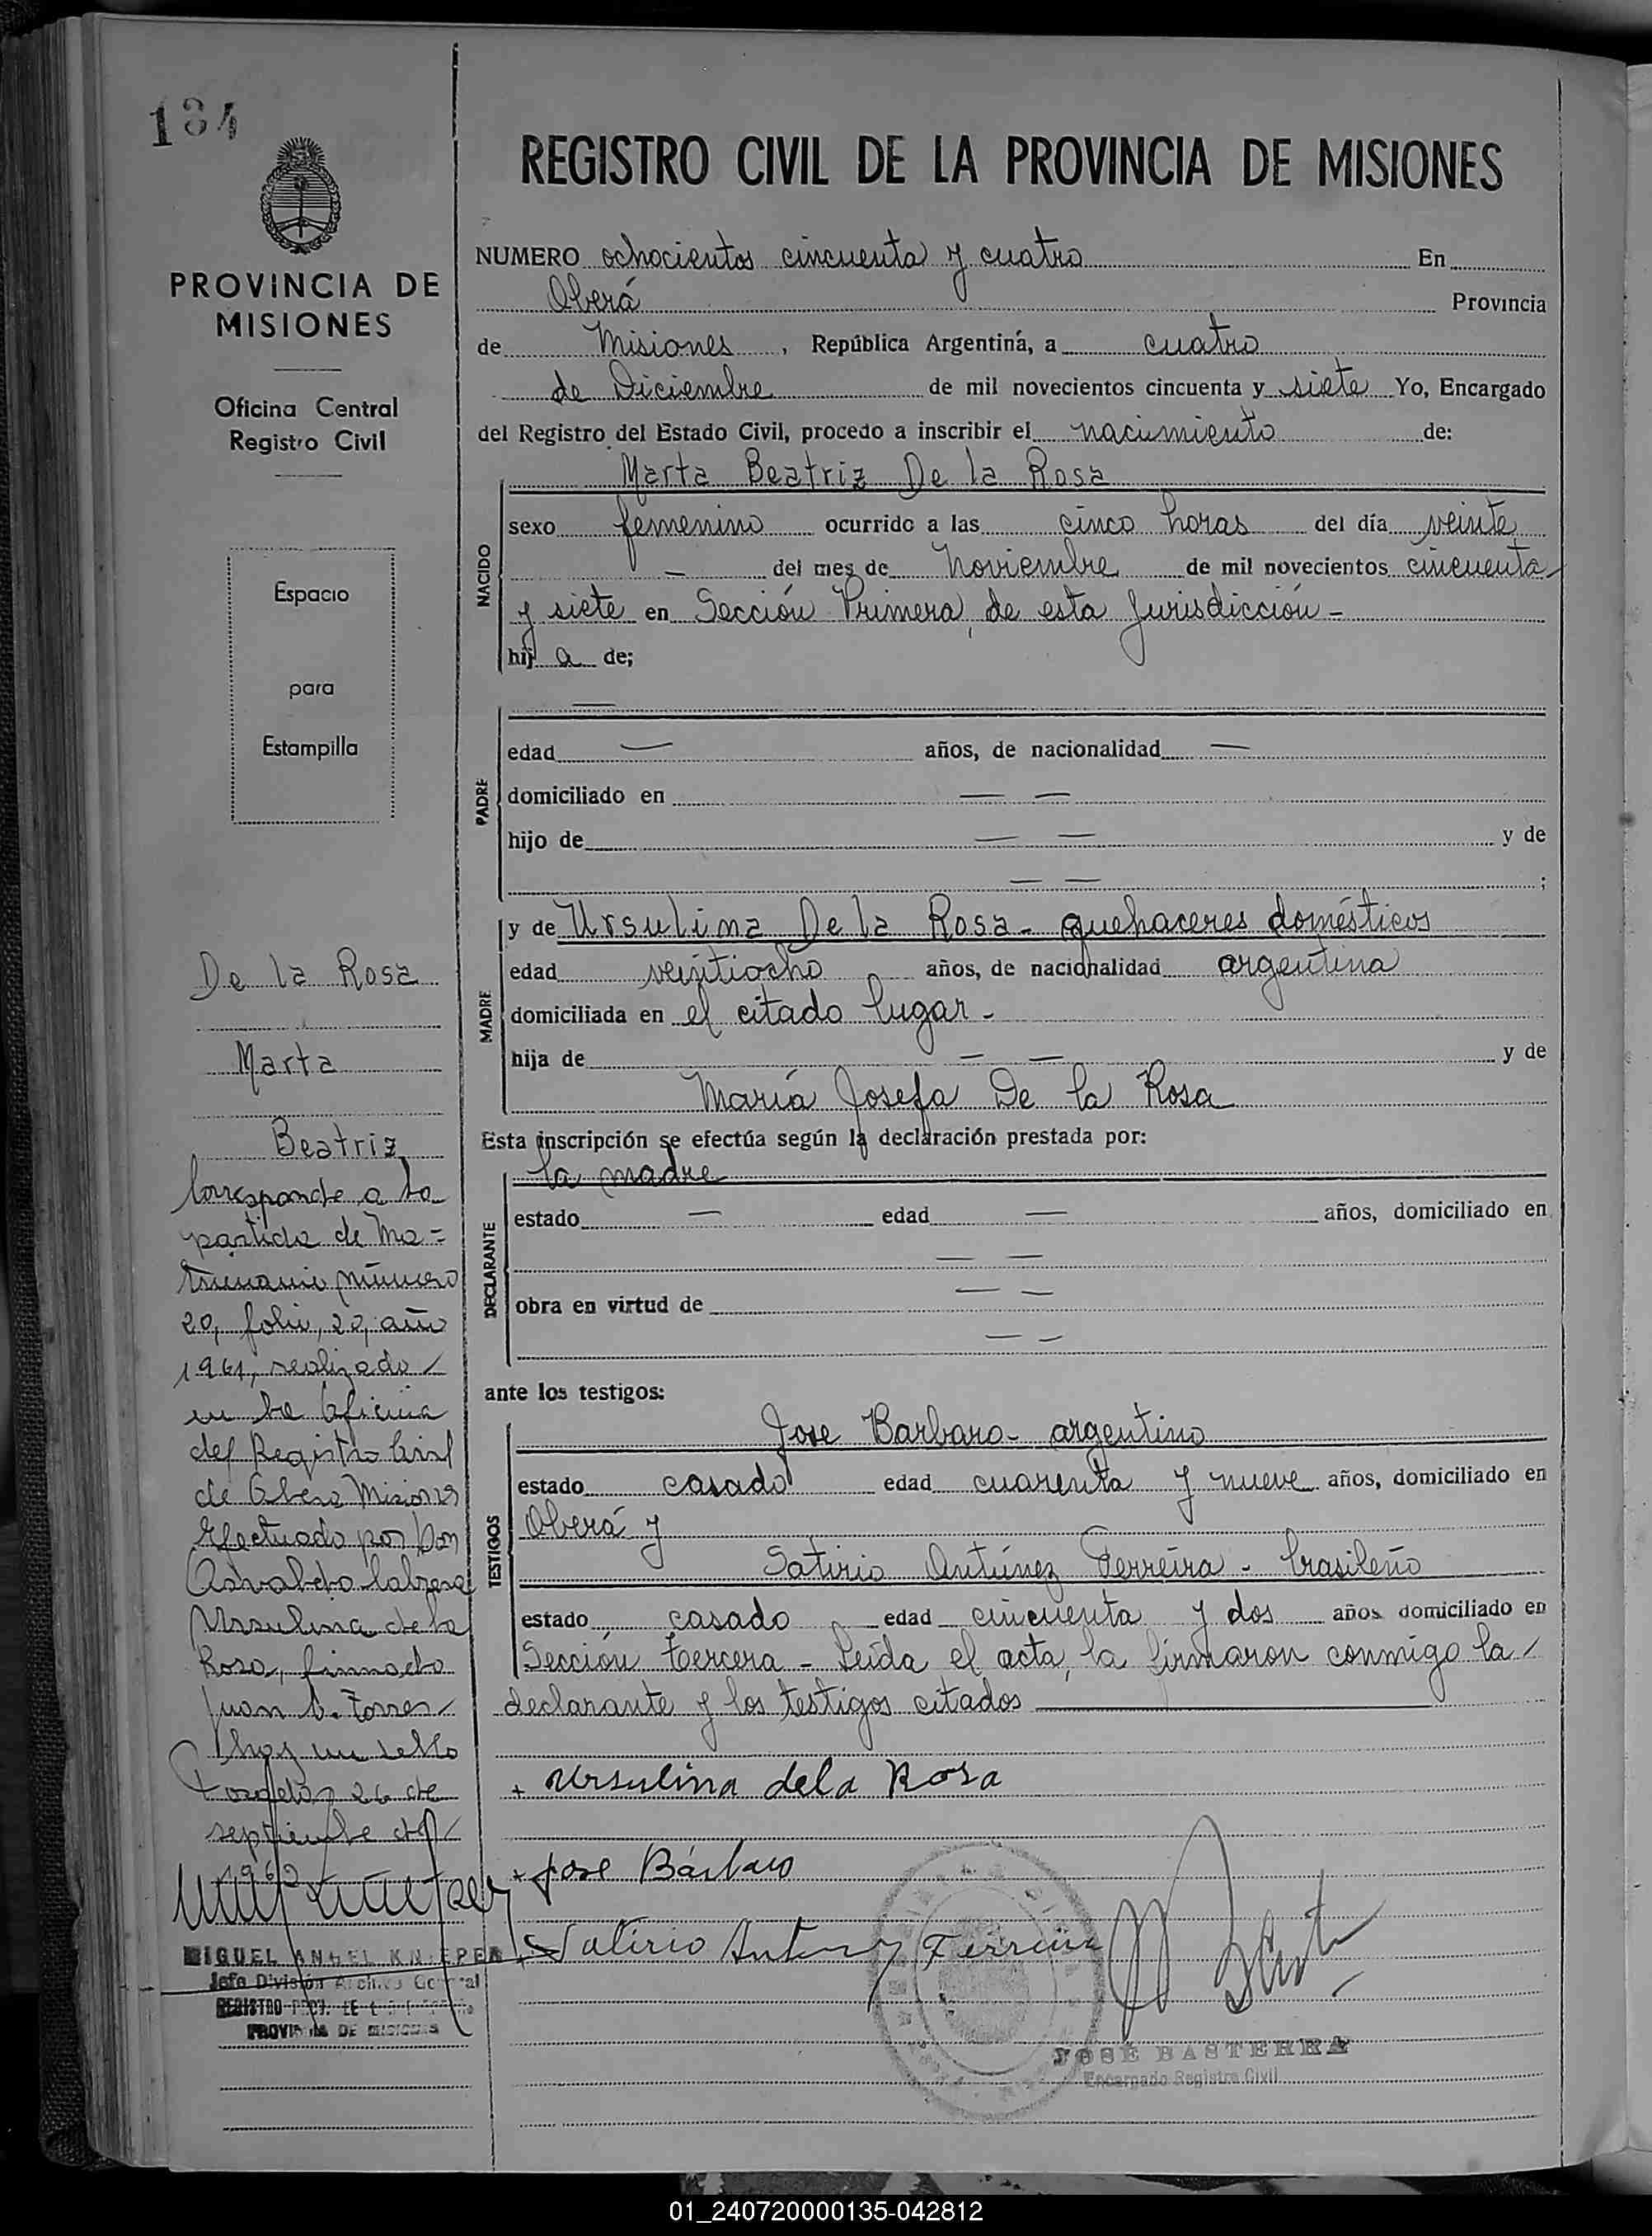 134
PROVINCIA DE
MISIONES
Oficina Central
Registro Civil
Espacio
para
Estampilla
De la Rosa
Marta
Beatriz
Corresponde a la
partida de Ma=
trimonio número
20, folio, 22, año
1961, realizado
en la Oficina
del Registro Civil
de Obera Misiones
Efectuado por Don
Osvaldo Cabrera
Ursulina de la
Rosa, firmado
Juan Torres
hay un sello
Posadas 26 de
septiembre de
MIGUEL ANGEL
Jefe División Archivo General
REGISTRO
PROVINCIA DE MISIONES
REGISTRO CIVIL DE LA PROVINCIA DE MISIONES
NUMERO ochocientos cincuenta y cuatro En
Oberá Provincia
de Misiones, República Argentina, a cuatro
de Diciembre de mil novecientos cincuenta y siete Yo, Encargado
del Registro del Estado Civil, procedo a inscribir el nacimiento de:
Marta Beatriz De la Rosa
NACIDO
sexo femenino ocurrido a las cinco horas del día veinte
— del mes de Noviembre de mil novecientos cincuenta
y siete en Sección Primera, de esta Jurisdicción -
hij a de;
—
PADRE
edad — años, de nacionalidad —
domiciliado en — —
hijo de — — y de
— — ;
MADRE
y de Ursulina De la Rosa - quehaceres domésticos
edad veintiocho años, de nacionalidad argentina
domiciliada en el citado lugar -
hija de — — y de
María Josefa De la Rosa
Esta inscripción se efectúa según la declaración prestada por:
la madre
DECLARANTE
estado — edad — años, domiciliado en
— —
obra en virtud de — —
— —
ante los testigos:
Jose Barbaro - argentino
TESTIGOS
estado casado edad cuarenta y nueve años, domiciliado en
Oberá y
Satirio Antúnez Ferreira - brasileño
estado casado edad cincuenta y dos años domiciliado en
Sección tercera - Leída el acta, la firmaron conmigo la
declarante y los testigos citados
+ Ursulina dela Rosa
+ Jose Bárbaro
+ Satirio Antunez Ferreira
JOSÉ BASTERRA
Encargado Registro Civil
01_240720000135-042812